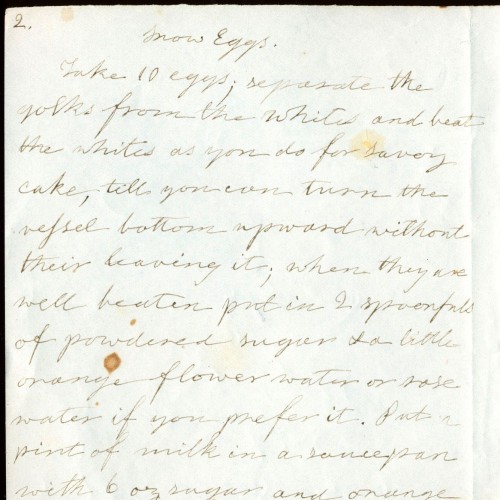 2.
Snow Eggs.
Take 10 eggs; separate the
yolks from the whites and beat
the whites as you do for savoy
cake, till you can turn the
vessel bottom upward without
their leaving it; when they are
well beaten put in 2 spoonfuls
of powdered sugar & a little
orange flower water or rose
water if you prefer it. Put a
pint of milk in a saucepan
with 6 oz sugar and orange